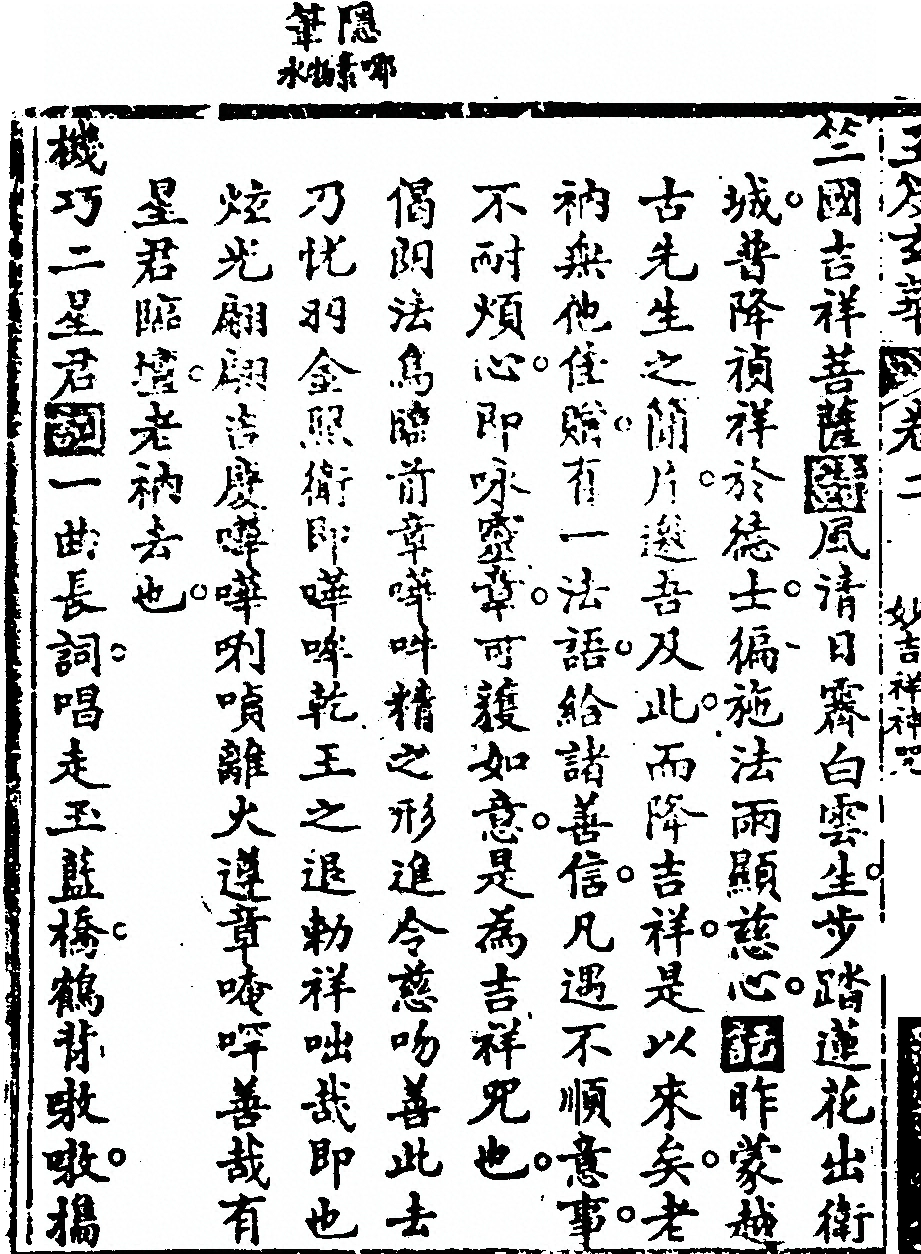 隱筆
哪素物水
妙吉祥神咒
竺國吉祥菩薩風清日霽白雲生步踏蓮花出衛
城普降禎祥於德士徧施法雨顯慈心話昨蒙越
古先生之簡片邀吾及此而降吉祥是以來矣老
衲無他佳贈有一法語給諸善信凡遇不順意事
不耐煩心即咏靈章可獲如意是為吉祥咒也
偈阴法為臨前章嘩吽精之形進令慈吻善此去
乃恍羽金照衛即嘩哞乾王之退勅祥咄哉即也
炫光翩翩吉慶嘩唎嗊離火遵章唵哶善哉有
星君臨壇老衲去也
機巧二星君一曲長詞唱走玉藍橋鶴背嗷嗷